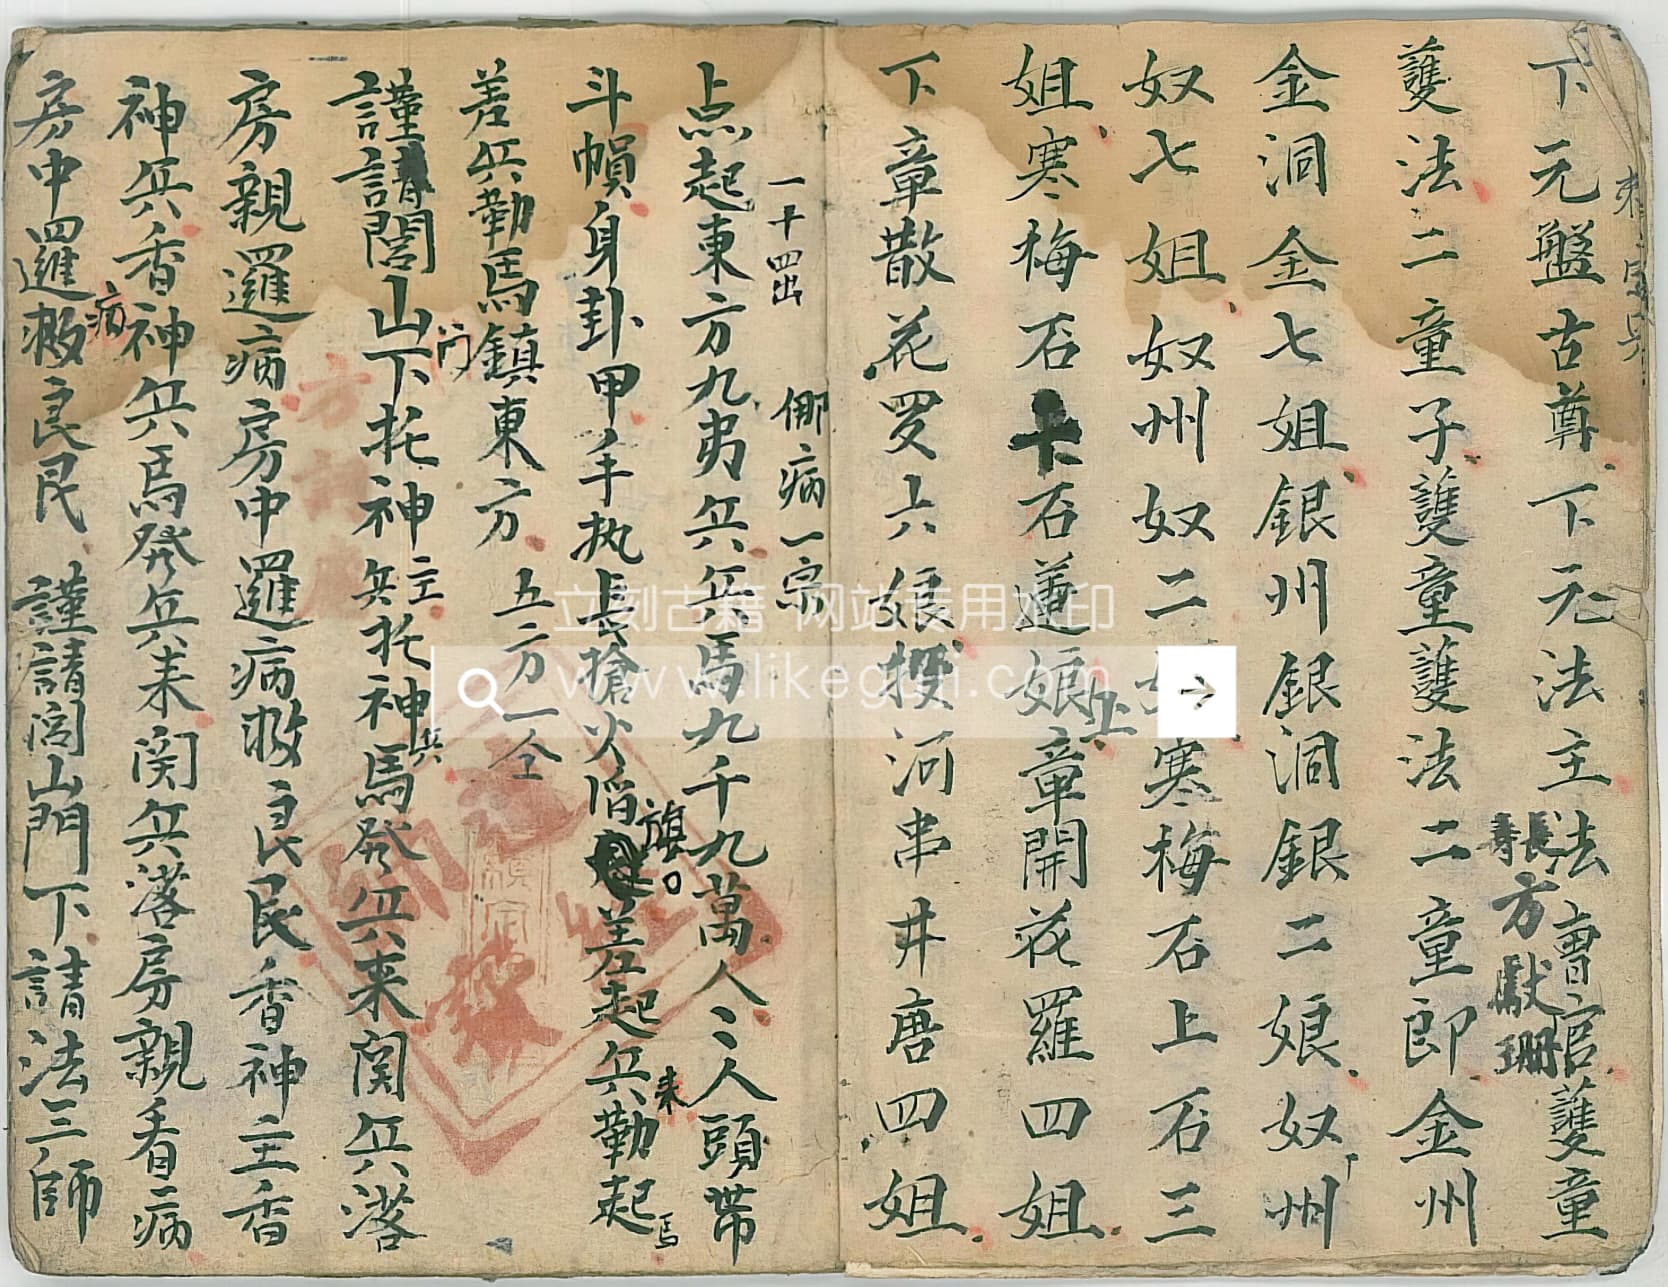 下元盤古尊下元法主法曹官護童
長壽
方獻珊
護法二童子護童護法二童郎金州
金洞金七姐銀州銀洞銀二娘奴州
奴七姐奴州奴二寒梅石上石三
姐寒梅石石蓮娘章開花羅四姐
下章散花罗六娘撑河串井唐四姐
一十四出 倻病一宗
点起東方九夷兵兵馬九千九萬人〻人頭帶
斗幀身卦甲手执長搶火焰旗差起兵來勒起馬
差兵勒馬鎮東方 五方一仝
謹請閭山門下托神主兵托神兵馬発兵来関兵落
房親邏病房中邏病救良民香神主香
神兵香神兵馬発兵来関兵落房親看病
房中邏病救良民謹請閭山門下請法三師
立刻古籍 网站专用水印
www.likegm.com